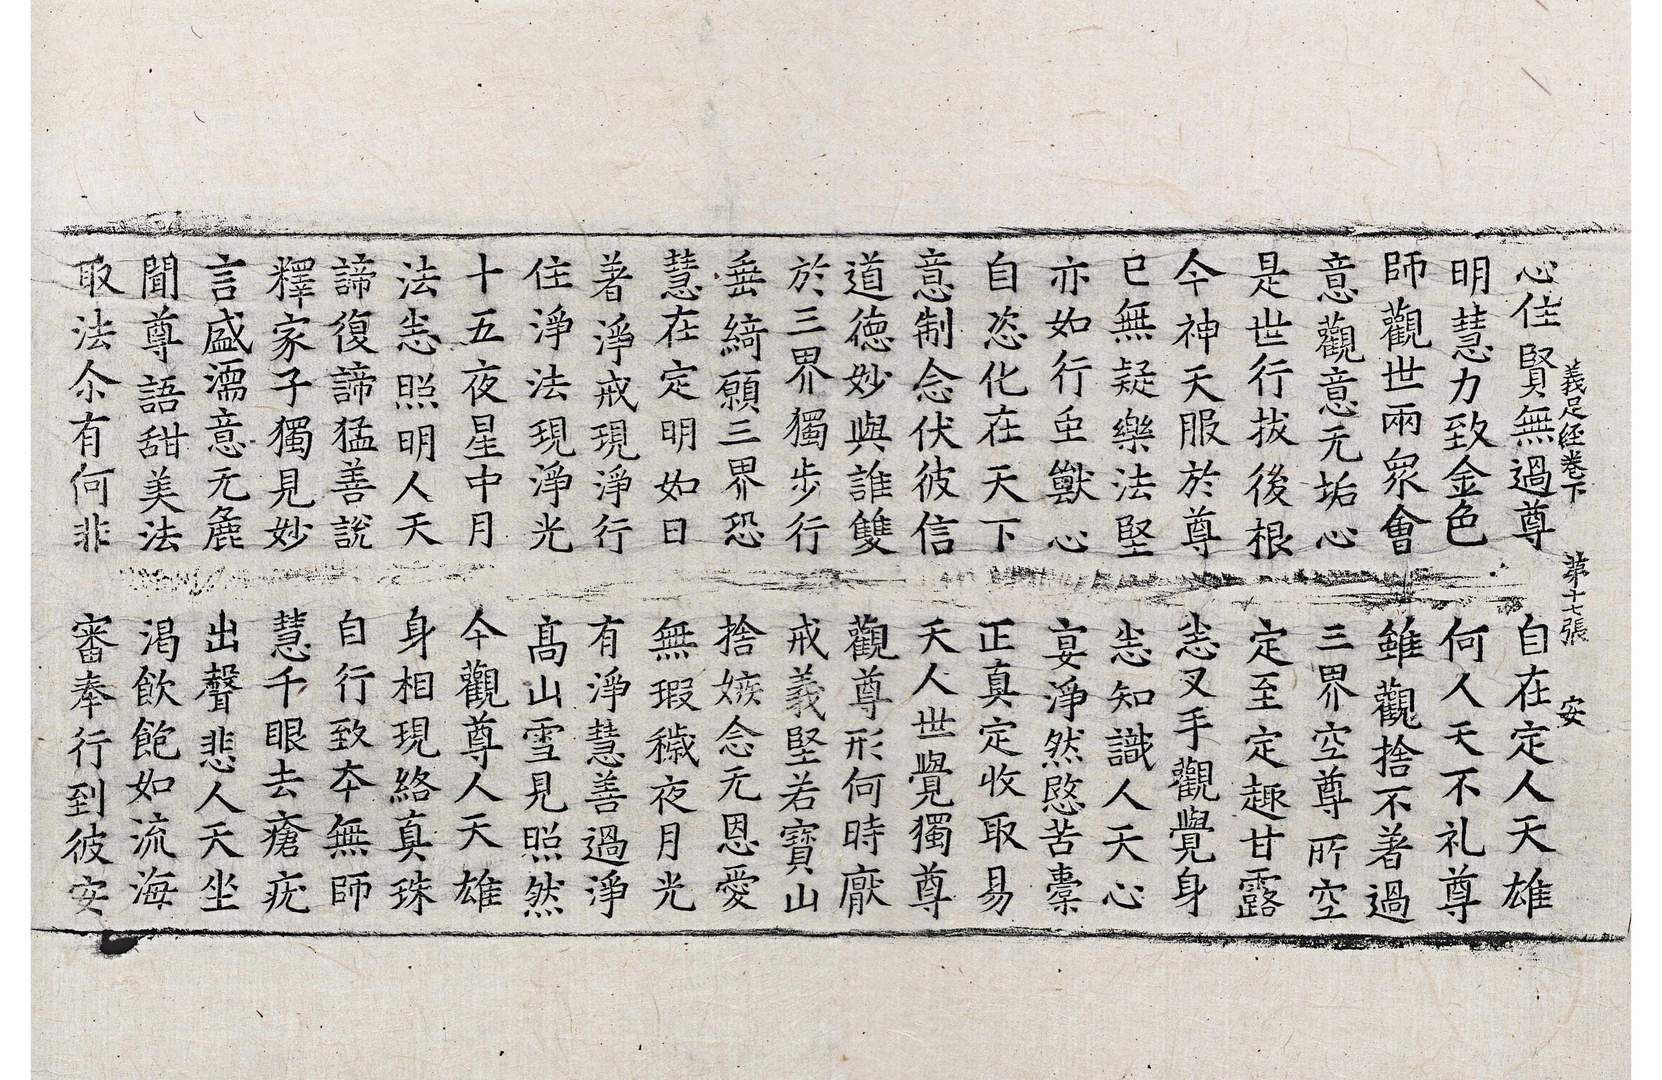 義足經卷下 第十七張 安
心住賢無過尊 自在定人天雄
明慧力致金色 何人天不礼尊
師觀世兩眾會 雖觀捨不著過
意觀意无垢心 三界空尊所空
是世行拔後根 定至定趣甘露
今神天服於尊 悉叉手觀覺身
已無疑樂法堅 悉知識人天心
亦如行虫獸心 宴淨然愍苦槖
自恣化在天下 正真定收取易
意制念伏彼信 天人世覺獨尊
道德妙與誰雙 觀尊形何時厭
於三界獨步行 戒義堅若寶山
垂綺願三界恐 捨嫉念无恩愛
慧在定明如日 無瑕穢夜月光
著淨戒現淨行 有淨慧善過淨
住淨法現淨光 高山雪見照然
十五夜星中月 今觀尊人天雄
法悉照明人天 身相現絡真珠
諦復諦猛善說 自行致本無師
釋家子獨見妙 慧千眼去瘡疣
言盛濡意无麁 出聲悲人天坐
聞尊語甜美法 渴飲飽如流海
取法尒有何非 審奉行到彼安